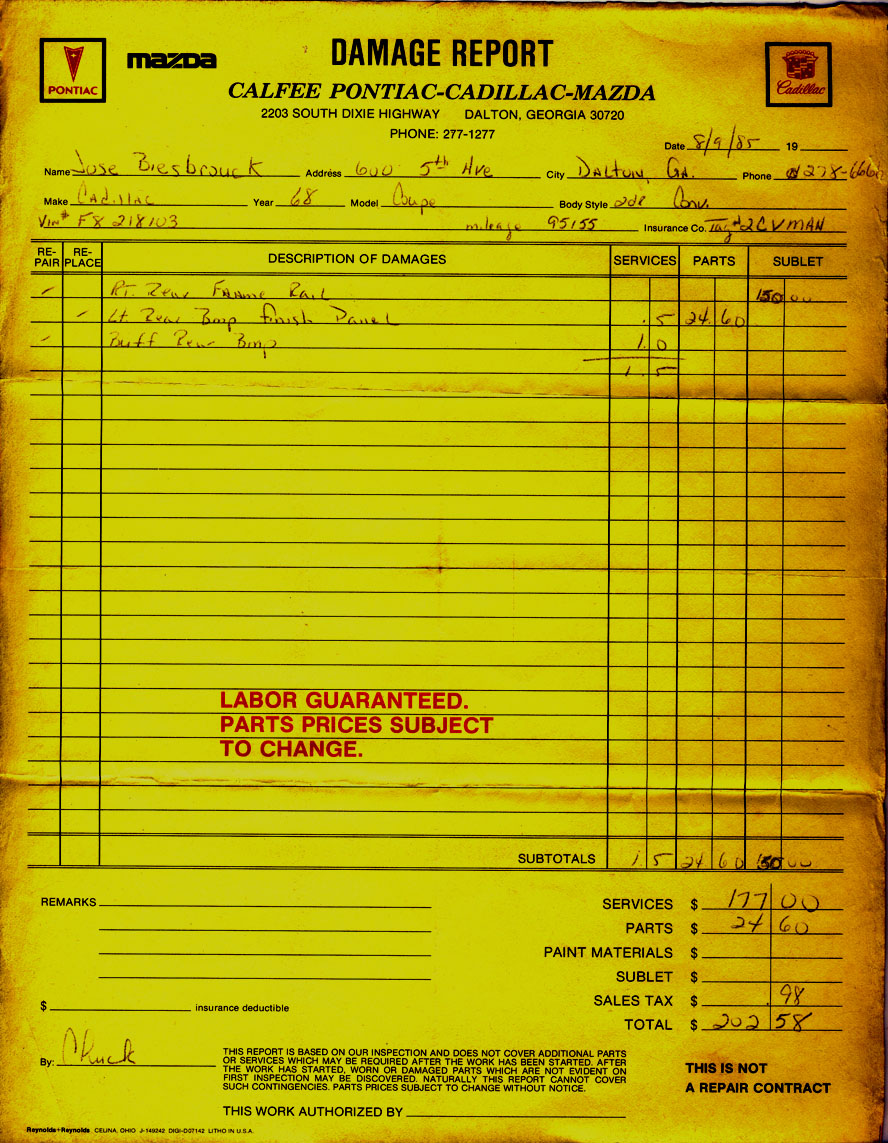 PONTIAC mazda DAMAGE REPORT Cadillac
CALFEE PONTIAC-CADILLAC-MAZDA
2203 SOUTH DIXIE HIGHWAY DALTON, GEORGIA 30720
PHONE: 277-1277
Date 8/9/85 19
Name Jose Biesbrouck Address 600 5th Ave City DALTON, GA. Phone 278-666
Make Cadillac Year 68 Model Coupe Body Style 2dr Conv.
Vin# F8 218103 mileage 95155 Insurance Co. Tag# 2CVMAN
RE-PAIR RE-PLACE DESCRIPTION OF DAMAGES SERVICES PARTS SUBLET
Rt. Rear Frame Rail 150 00
Lt Rear Bmp finish Panel .5 24 60
Buff Rear Bmp 1.0
1.5
LABOR GUARANTEED.
PARTS PRICES SUBJECT
TO CHANGE.
SUBTOTALS 1.5 24 60 150 00
REMARKS
SERVICES $ 177 00
PARTS $ 24 60
PAINT MATERIALS $
SUBLET $
$ insurance deductible
SALES TAX $ .98
TOTAL $ 202 58
By: Chuck
THIS REPORT IS BASED ON OUR INSPECTION AND DOES NOT COVER ADDITIONAL PARTS
OR SERVICES WHICH MAY BE REQUIRED AFTER THE WORK HAS BEEN STARTED. AFTER
THE WORK HAS STARTED, WORN OR DAMAGED PARTS WHICH ARE NOT EVIDENT ON
FIRST INSPECTION MAY BE DISCOVERED. NATURALLY THIS REPORT CANNOT COVER
SUCH CONTINGENCIES. PARTS PRICES SUBJECT TO CHANGE WITHOUT NOTICE.
THIS IS NOT
A REPAIR CONTRACT
THIS WORK AUTHORIZED BY
Reynolds+Reynolds CELINA, OHIO J-149242 DIGI-D07142 LITHO IN U.S.A.